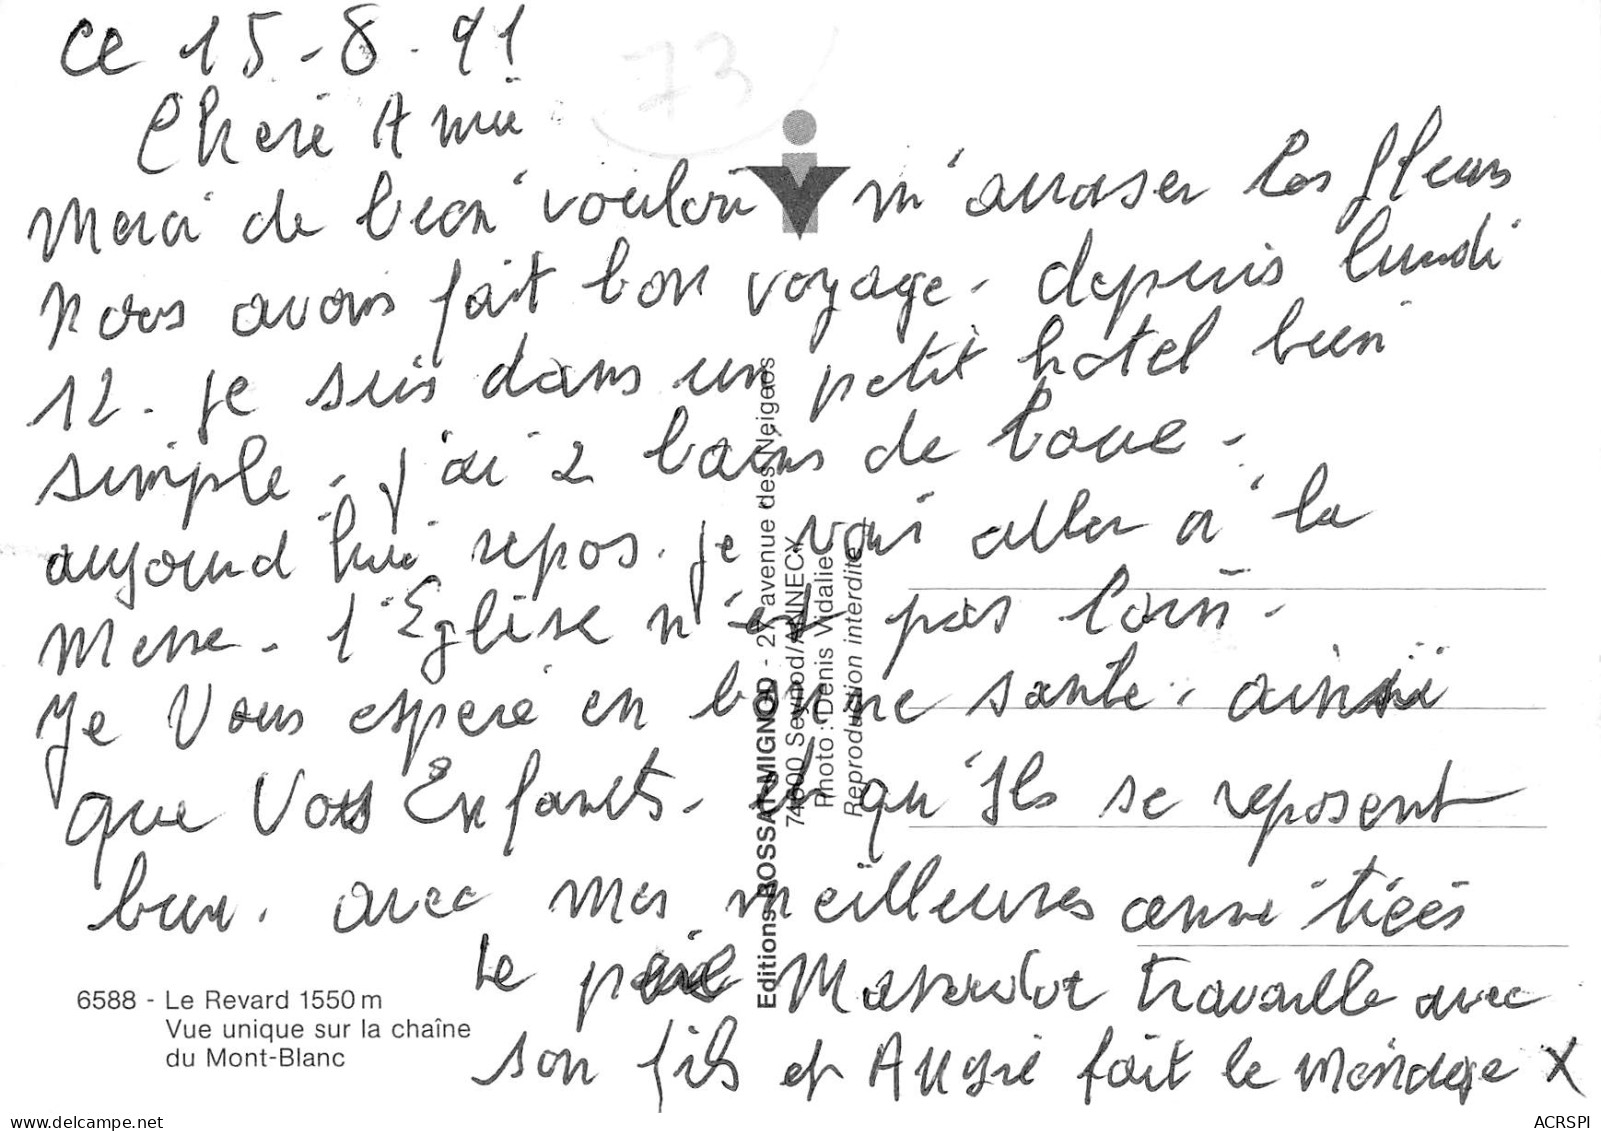 ce 15-8-91
73
Chere Amie
Merci de bien vouloir m'arroser les fleurs
Nous avons fait bon voyage. depuis lundi
12. je suis dans un petit hotel bien
simple. j'ai 2 bains de boue.
aujourd'hui repos. je vais aller a la
Messe. l'Eglise n'est pas loin.
Je Vous espere en bonne sante. ainsi
que Vos Enfants. et qu'Ils se reposent
bien. avec mes meilleures amitiées
Le travaille avec
son fils et fait le menage X
6588 - Le Revard 1550 m
Vue unique sur la chaîne
du Mont-Blanc
Editions ROSSAT-MIGNOD - 27 avenue des Neigeos
74600 Seynod/ANNECY
Photo : Denis Vidalie
Reproduction interdite
ACRSPI